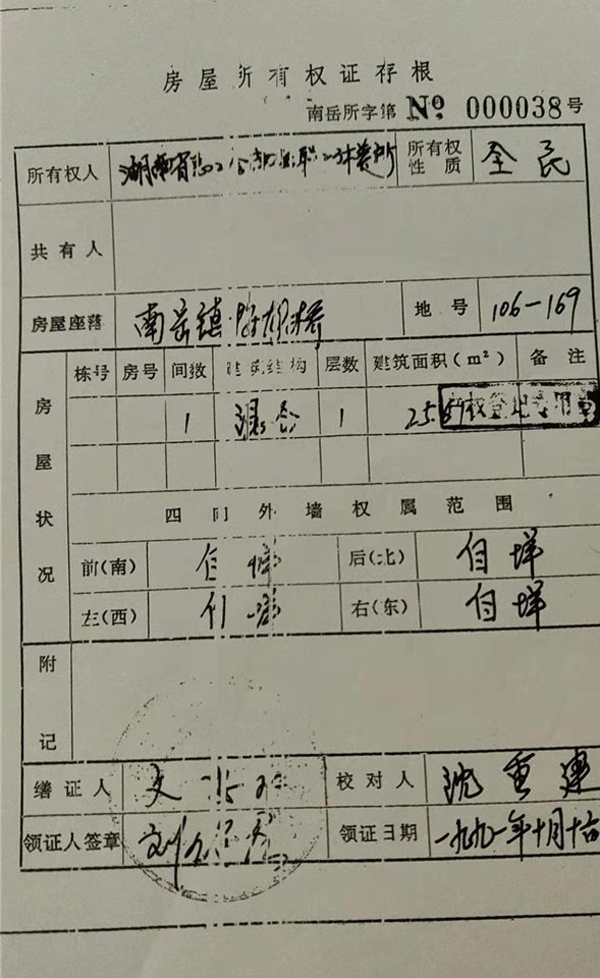 房屋所有权证存根
南岳所字第 № 000038号
所有权人 湖南省 所有权性质 全民
共有人
房屋座落 南岳镇 地号 106-169
房屋状况 栋号 房号 间数 建筑结构 层数 建筑面积(m²) 备注
1 混合 1 25.
四向外墙权属范围
前(南) 自垟 后(北) 自垟
左(西) 自垟 右(东) 自垟
附记
缮证人 文 校对人 沈重建
领证人签章 刘 领证日期 一九九一年十月十六